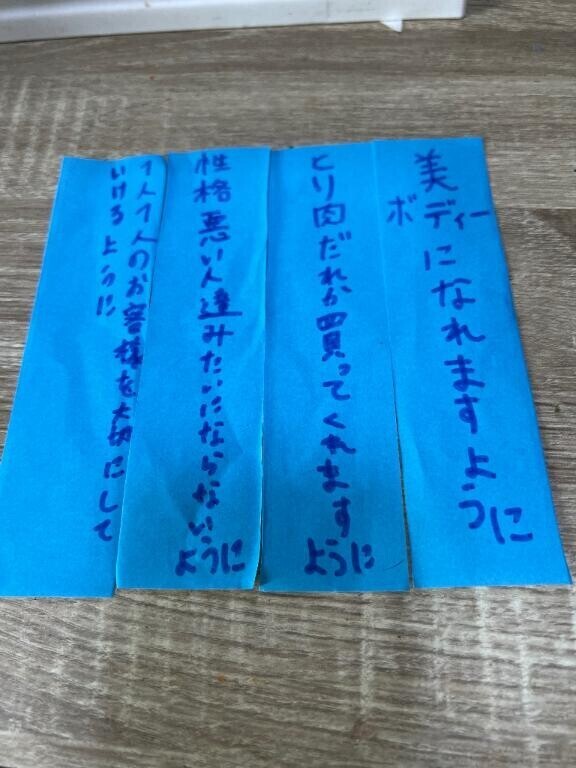 美
ボディー
になれますように
とり肉だれか買ってくれます
ように
性格悪い人達みたいにならない
ように
1人1人のお客様を大切にして
いけるように